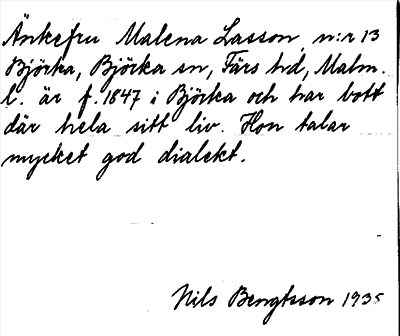 Änkefru Malena Lasson, n:r 13
Björka, Björka sn, Färs hd, Malm.
l. är f. 1847 i Björka och har bott
där hela sitt liv. Hon talar
mycket god dialekt.
Nils Bengtsson 1935